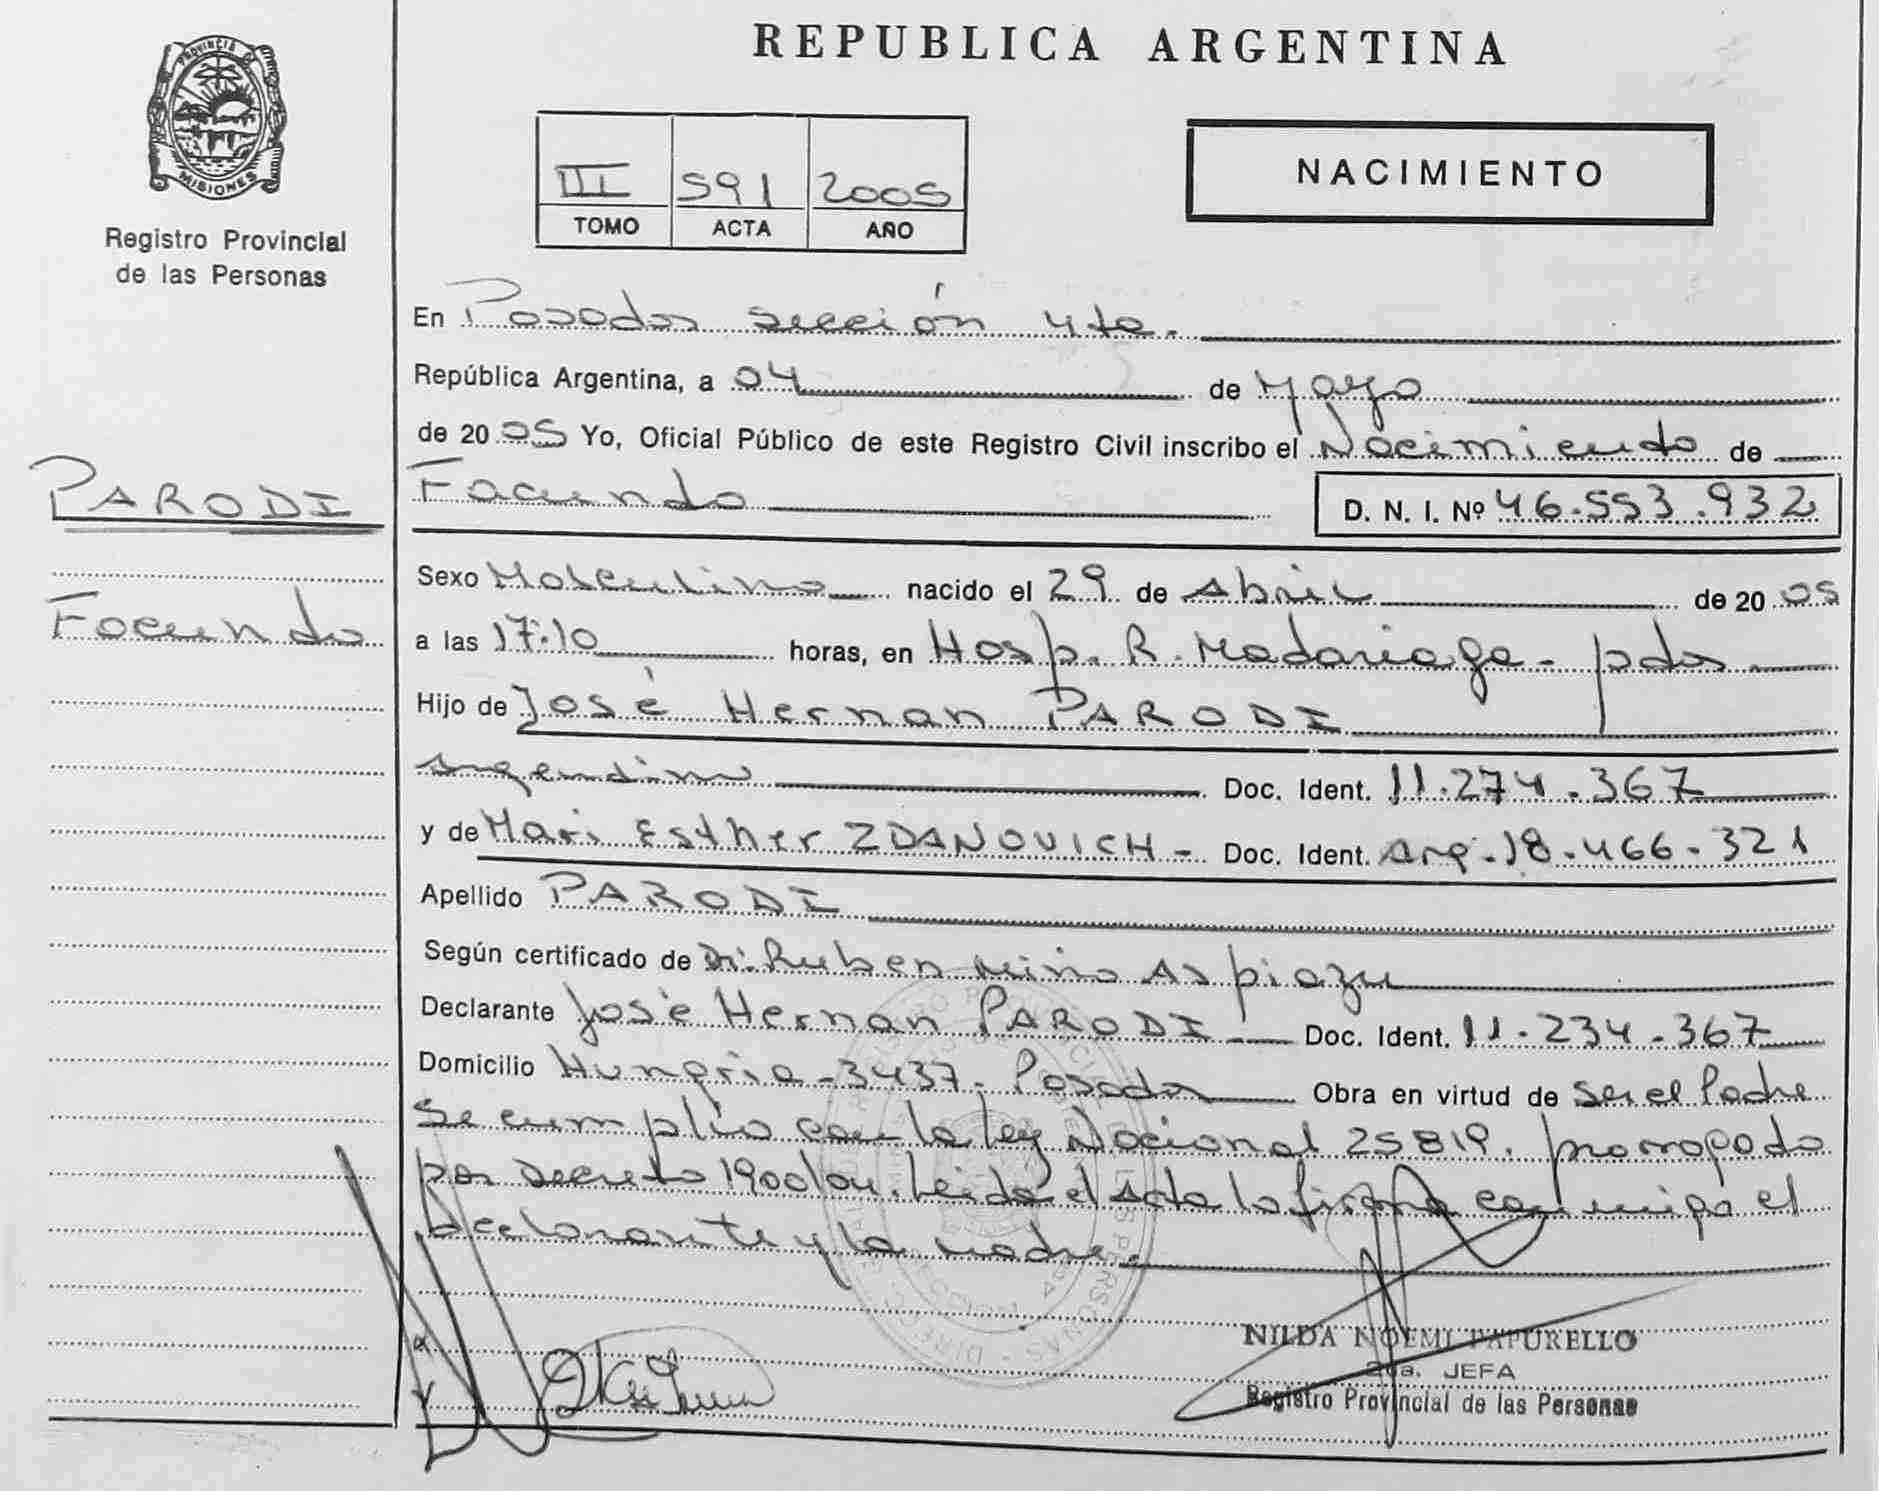 REPUBLICA ARGENTINA
PROVINCIA DE
MISIONES
Registro Provincial
de las Personas
III 591 2005
TOMO ACTA AÑO
NACIMIENTO
En Posadas sección 4ta.
República Argentina, a 04 de Mayo
de 2005 Yo, Oficial Público de este Registro Civil inscribo el Nacimiento de
PARODI
Facundo
Facundo D. N. I. Nº 46.553.932
Sexo Masculino nacido el 29 de Abril de 2005
a las 17:10 horas, en Hosp. R. Madariaga - pdas
Hijo de José Hernan PARODI
argentino Doc. Ident. 11.274.367
y de Mari Esther ZDANOVICH - Doc. Ident. Arg. 18.466.321
Apellido PARODI
Según certificado de Dr. Ruben Miño Aspiazu
Declarante José Hernan PARODI Doc. Ident. 11.234.367
Domicilio Hungria - 3437 - Posadas Obra en virtud de ser el Padre
Se cumplio con la ley Nacional 25819. prorrogado
por Decreto 1900/04. Leida el Acta la firma conmigo el
declarante y la madre.
NILDA NOEMI PAPURELLO
2da. JEFA
Registro Provincial de las Personas